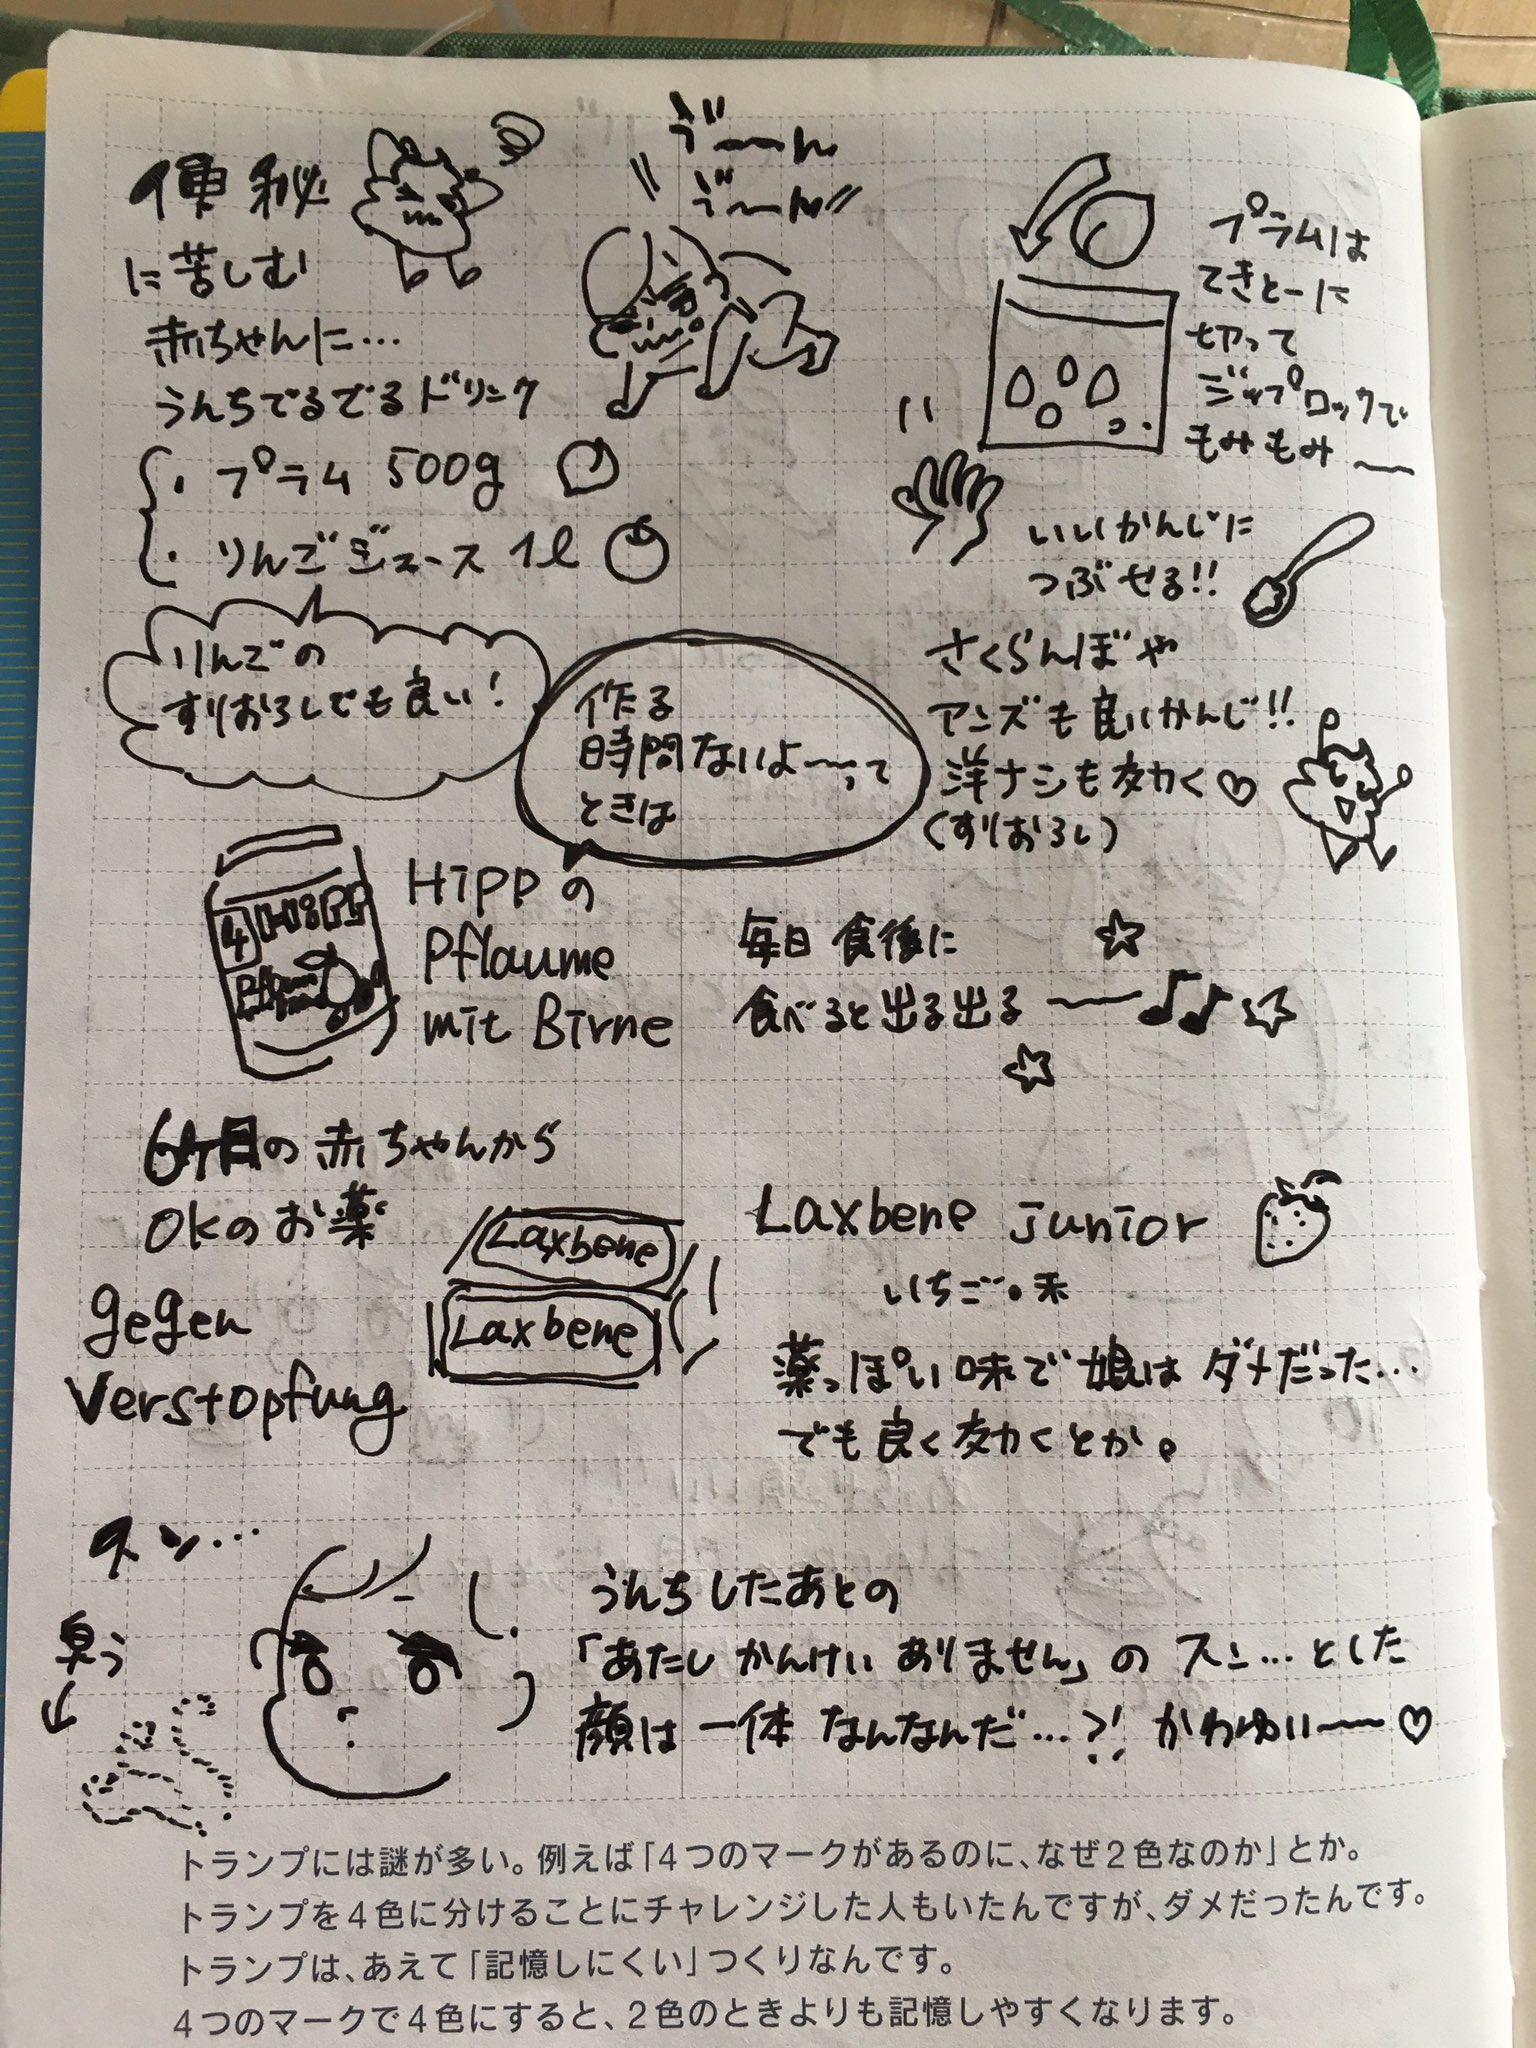 便秘
に苦しむ
赤ちゃんに…
うんちでるでるドリンク
・プラム 500g
・りんごジュース 1ℓ
りんごの
すりおろしでも良い!
ゔーーん
ゔーーん
プラムは
てきとーに
切って
ジップロックで
もみもみ〜
いいかんじに
つぶせる!!
さくらんぼや
アンズも良いかんじ!!
洋ナシも効く♡
(すりおろし)
作る
時間ないよ〜って
ときは
4 HiPP
HiPPの
Pflaume
mit Birne
毎日 食後に
食べると出る出る〜♪♪☆
6ヶ月の赤ちゃんから
OKのお薬
gegen
Verstopfung
Laxbene
Laxbene
Laxbene junior
いちご味
薬っぽい味で娘はダメだった…
でも良く効くとか。
スン…
臭う
うんちしたあとの
「あたし かんけい ありません」の スン…とした
顔は 一体 なんなんだ…?! かわゆい〜♡
トランプには謎が多い。例えば「4つのマークがあるのに、なぜ2色なのか」とか。
トランプを4色に分けることにチャレンジした人もいたんですが、ダメだったんです。
トランプは、あえて「記憶しにくい」つくりなんです。
4つのマークで4色にすると、2色のときよりも記憶しやすくなります。